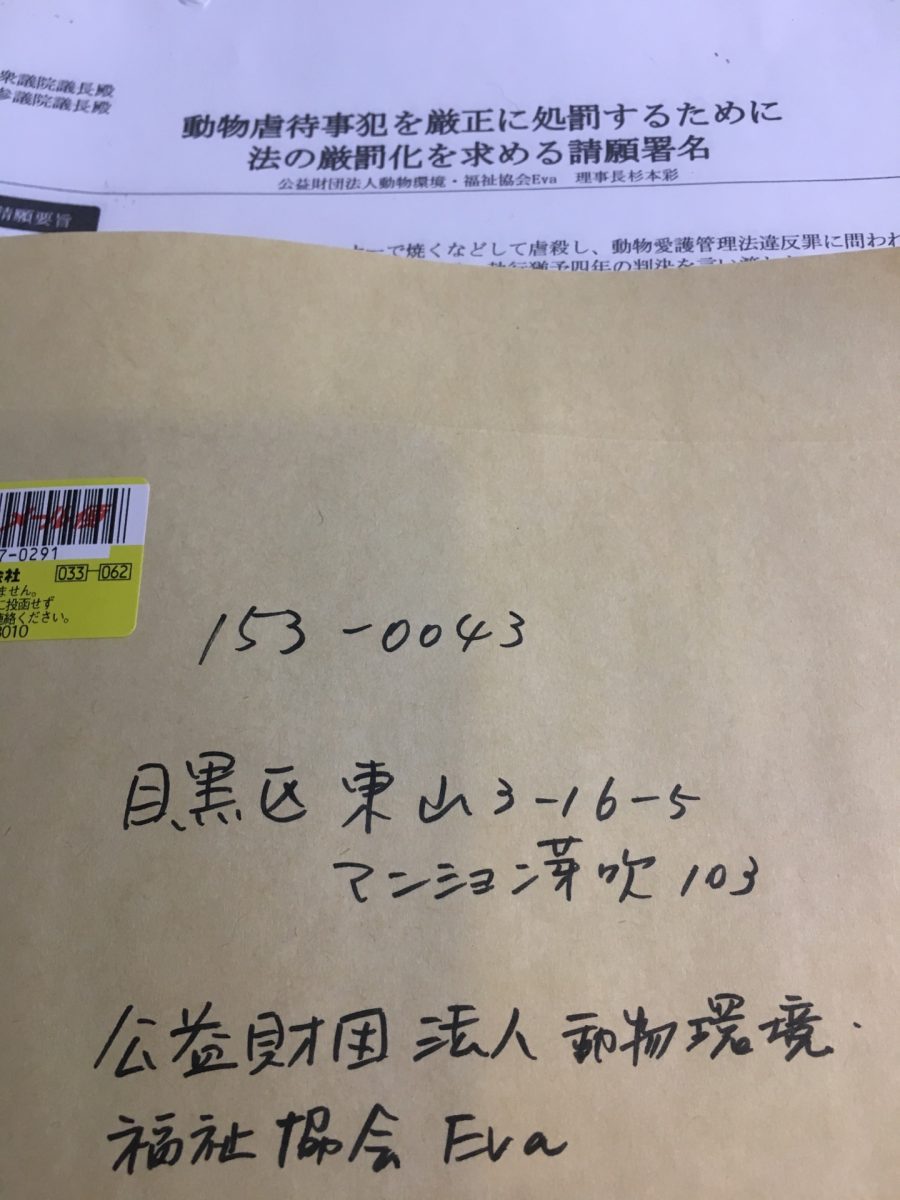 衆議院議長殿
参議院議長殿
動物虐待事犯を厳正に処罰するために
法の厳罰化を求める請願署名
公益財団法人動物環境・福祉協会Eva 理事長杉本彩
請願要旨
ーで焼くなどして虐殺し、動物愛護管理法違反罪に問われ
執行猶予四年の判決を言い渡
7-0291
会社 033-062
ません。
に投函せず
絡ください。
3010
153-0043
目黒区東山3-16-5
マンション芽吹103
公益財団法人動物環境・
福祉協会Eva